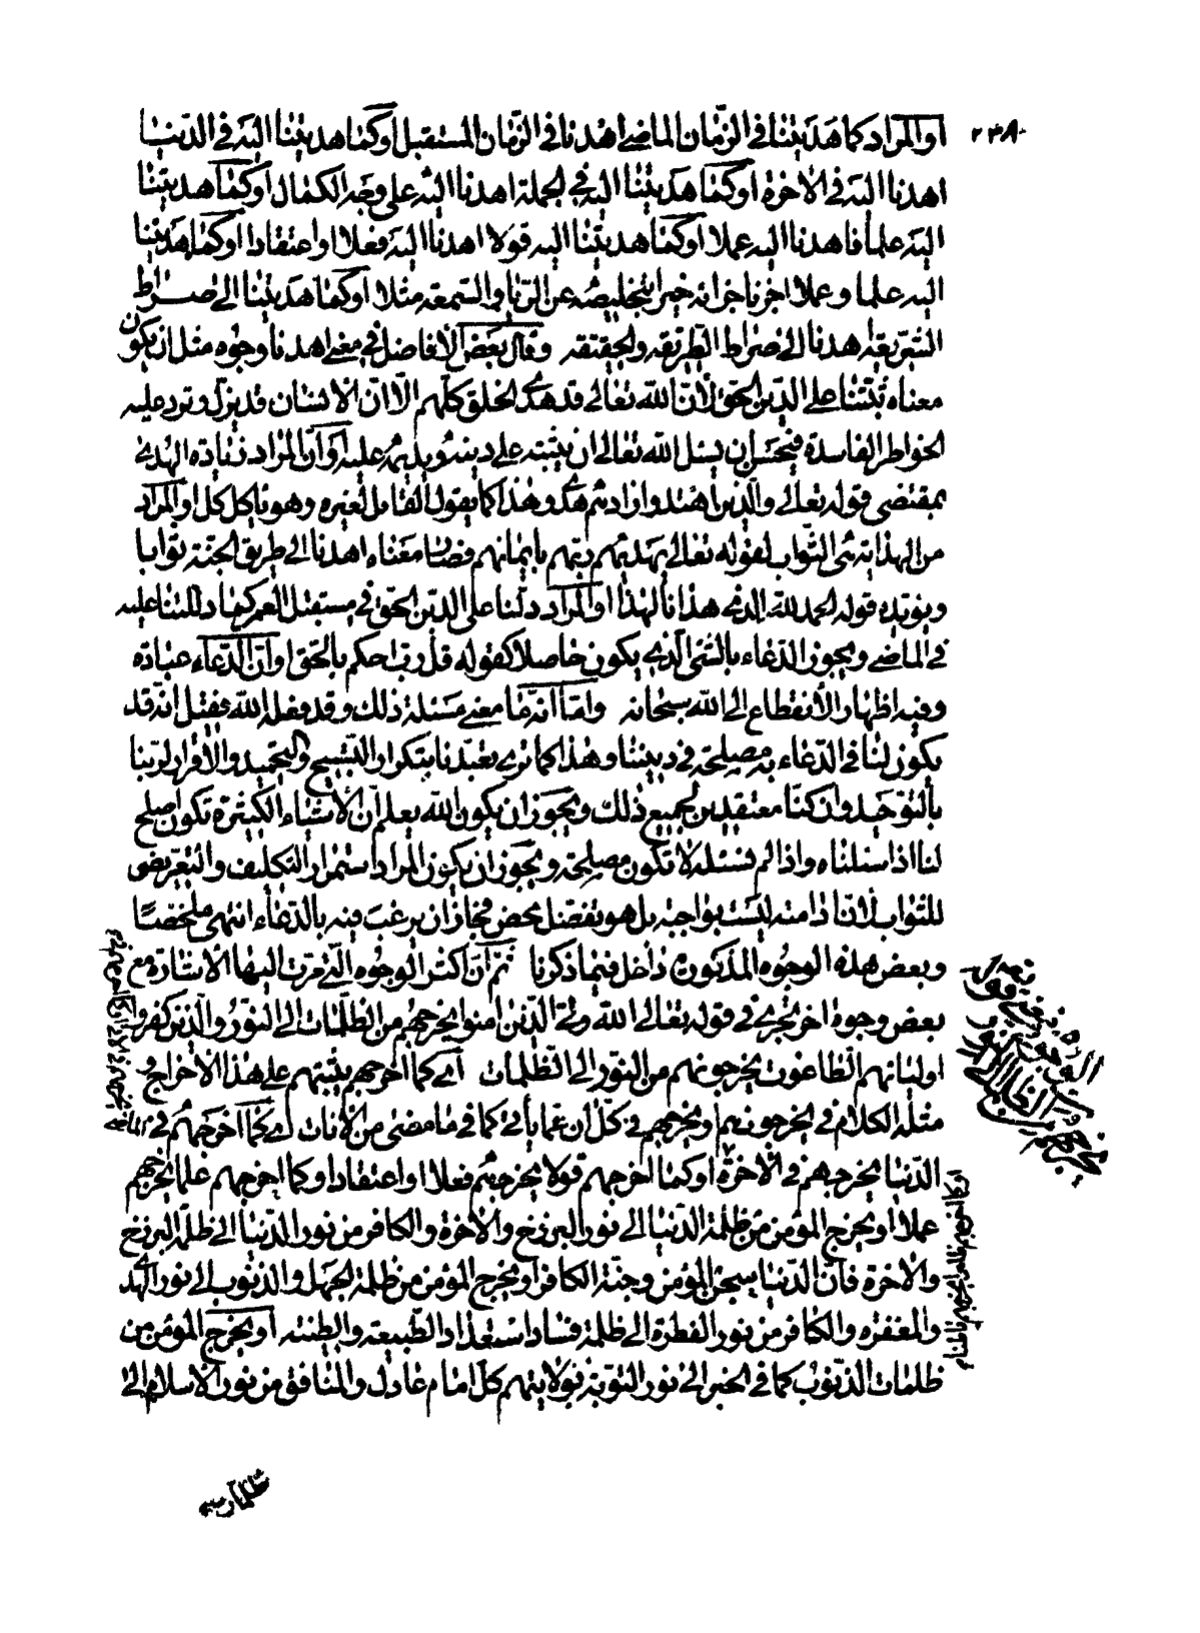 ٢٣٨
او المراد كما هديتنا فى الزمان الماضى اهدنا فى الزمان المستقبل او كما هديتنا اليه فى الدنيا
اهدنا اليه فى الاخرة او كما هديتنا اليه فى الجملة اهدنا اليه على وجه الكمال او كما هديتنا
اليه علما فاهدنا اليه عملا او كما هديتنا اليه قولا اهدنا اليه فعلا او اعتقادا او كما هديتنا
اليه علما وعملا اجرنا جزائه خيرا بتخليصه عن الريا والسمعة مثلا او كما هديتنا الى صراط
الشريعة اهدنا الى صراط الطريقه والحقيقه وقال بعض الافاضل فى معنى اهدنا وجوه مثل ان يكون
معناه ثبتنا على الدين الحق لان الله تعالى قد هدى الخلق كلهم الا ان الانسان قد يزل وترد عليه
الخواطر الفاسدة فيحسن ان يسئل الله تعالى ان يثبته على دينه ويديمه عليه او ان المراد زيادة الهدى
بمقتضى قوله تعالى والذين اهتدوا زادهم هدى وهذا كما يقول القائل لغيره وهو ياكل كل او المراد
من الهداية هى الثواب لقوله تعالى يهديهم ربهم بايمانهم فصار معناه اهدنا الى طريق الجنة ثوابا
ويؤيده قوله الحمد لله الذى هدانا لهذا او المراد دلنا على الدين الحق فى مستقبل العمر كما دللتنا عليه
فى الماضى ويجوز الدعاء بالشئ الذى يكون حاصلا كقوله قل رب احكم بالحق او ان الدعاء عبادة
وفيه اظهار الانقطاع الى الله سبحانه واما انه ما معنى مسئلة ذلك وقد فعله الله فقيل انه قد
يكون لنا فى الدعاء به مصلحة فى ديننا وهذا كما ترى تعبدنا بتكرار التسبيح والتحميد والاقرار لربنا
بالتوحيد وان كنا معتقدين لجميع ذلك ويجوز ان يكون الله يعلم ان الاشياء الكثيرة تكون اصلح
لنا اذا سئلناه واذا لم نسئله لا تكون مصلحة ويجوز ان يكون المراد استمرار التكليف والتعريض
للثواب لان ادامته ليست بواجبة بل هو تفضل محض فجاز ان يرغب فيه بالدعاء انتهى ملخصا
وبعض هذه الوجوه المذكورة داخل فيما ذكرنا ثم ان اكثر الوجوه التى مرت اليها الاشارة مع
بعض وجوه اخر تجرى فى قوله تعالى الله ولى الذين امنوا يخرجهم من الظلمات الى النور والذين كفروا
اوليائهم الطاغوت يخرجونهم من النور الى الظلمات اى كما اخرجهم يثبتهم على هذا الاخراج و
مثله الكلام فى يخرجونهم او يخرجهم فى كل ان مما ياتى كما فى ما مضى من الانات اى كما اخرجهم فى
الدنيا يخرجهم فى الاخرة او كما اخرجهم قولا يخرجهم فعلا او اعتقادا او كما اخرجهم علما يخرجهم
عملا او يخرج المؤمن من ظلمة الدنيا الى نور البرزخ والاخرة والكافر من نور الدنيا الى ظلمة البرزخ
والاخرة فان الدنيا سجن المؤمن وجنة الكافر او يخرج المؤمن من ظلمة الجهل والذنوب الى نور الهدى
والمغفرة والكافر من نور الفطرة الى ظلمة فساد استعداد الطبيعة والطينه او يخرج المؤمن من
ظلمات الذنوب كما فى الخبر الى نور التوبة بولايتهم كل امام عادل والمنافق من نور الاسلام الى
ظلمات